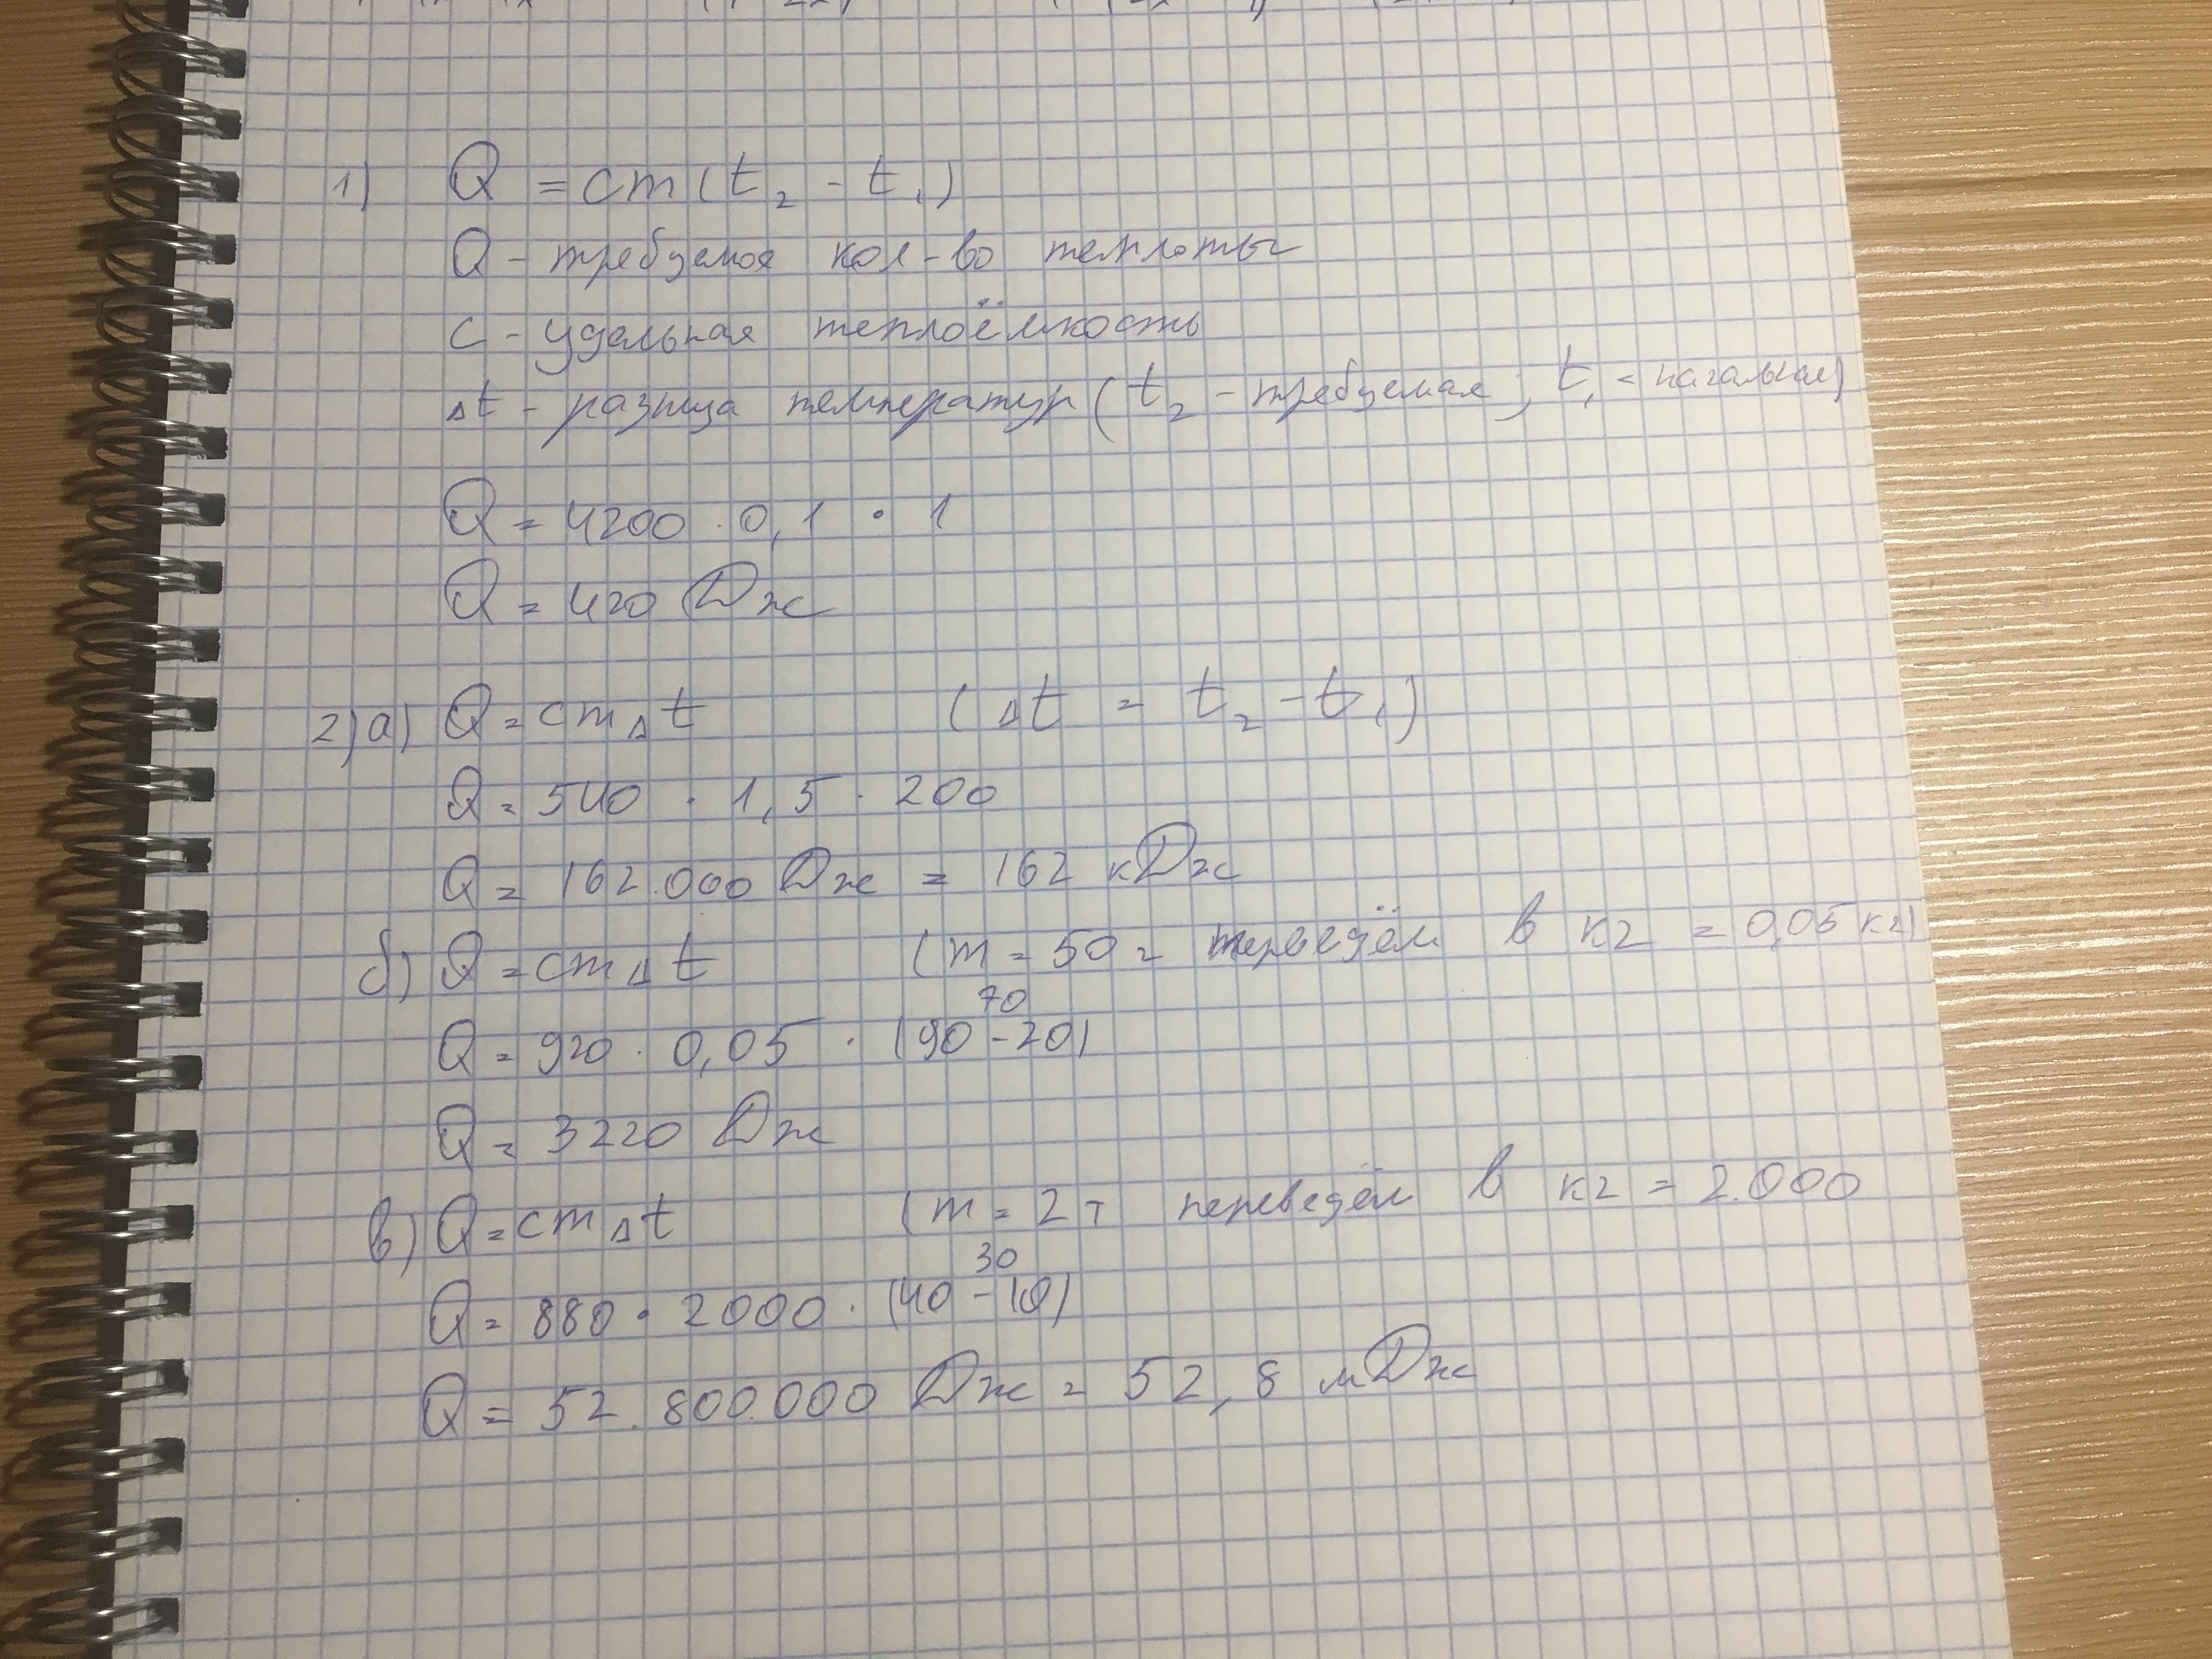 1) Q = cm(t₂ - t₁)
Q - требуемое кол-во теплоты
c - удельная теплоёмкость
Δt - разница температур (t₂ - требуемая; t₁ - начальная)
Q = 4200 · 0,1 · 1
Q = 420 Дж
2) а) Q = cmΔt (Δt = t₂ - t₁)
Q = 540 · 1,5 · 200
Q = 162.000 Дж = 162 кДж
б) Q = cmΔt (m = 50г переведём в кг = 0,05 кг)
70
Q = 920 · 0,05 · (90 - 20)
Q = 3220 Дж
в) Q = cmΔt (m = 2т переведём в кг = 2.000
30
Q = 880 · 2000 · (40 - 10)
Q = 52.800.000 Дж = 52,8 мДж